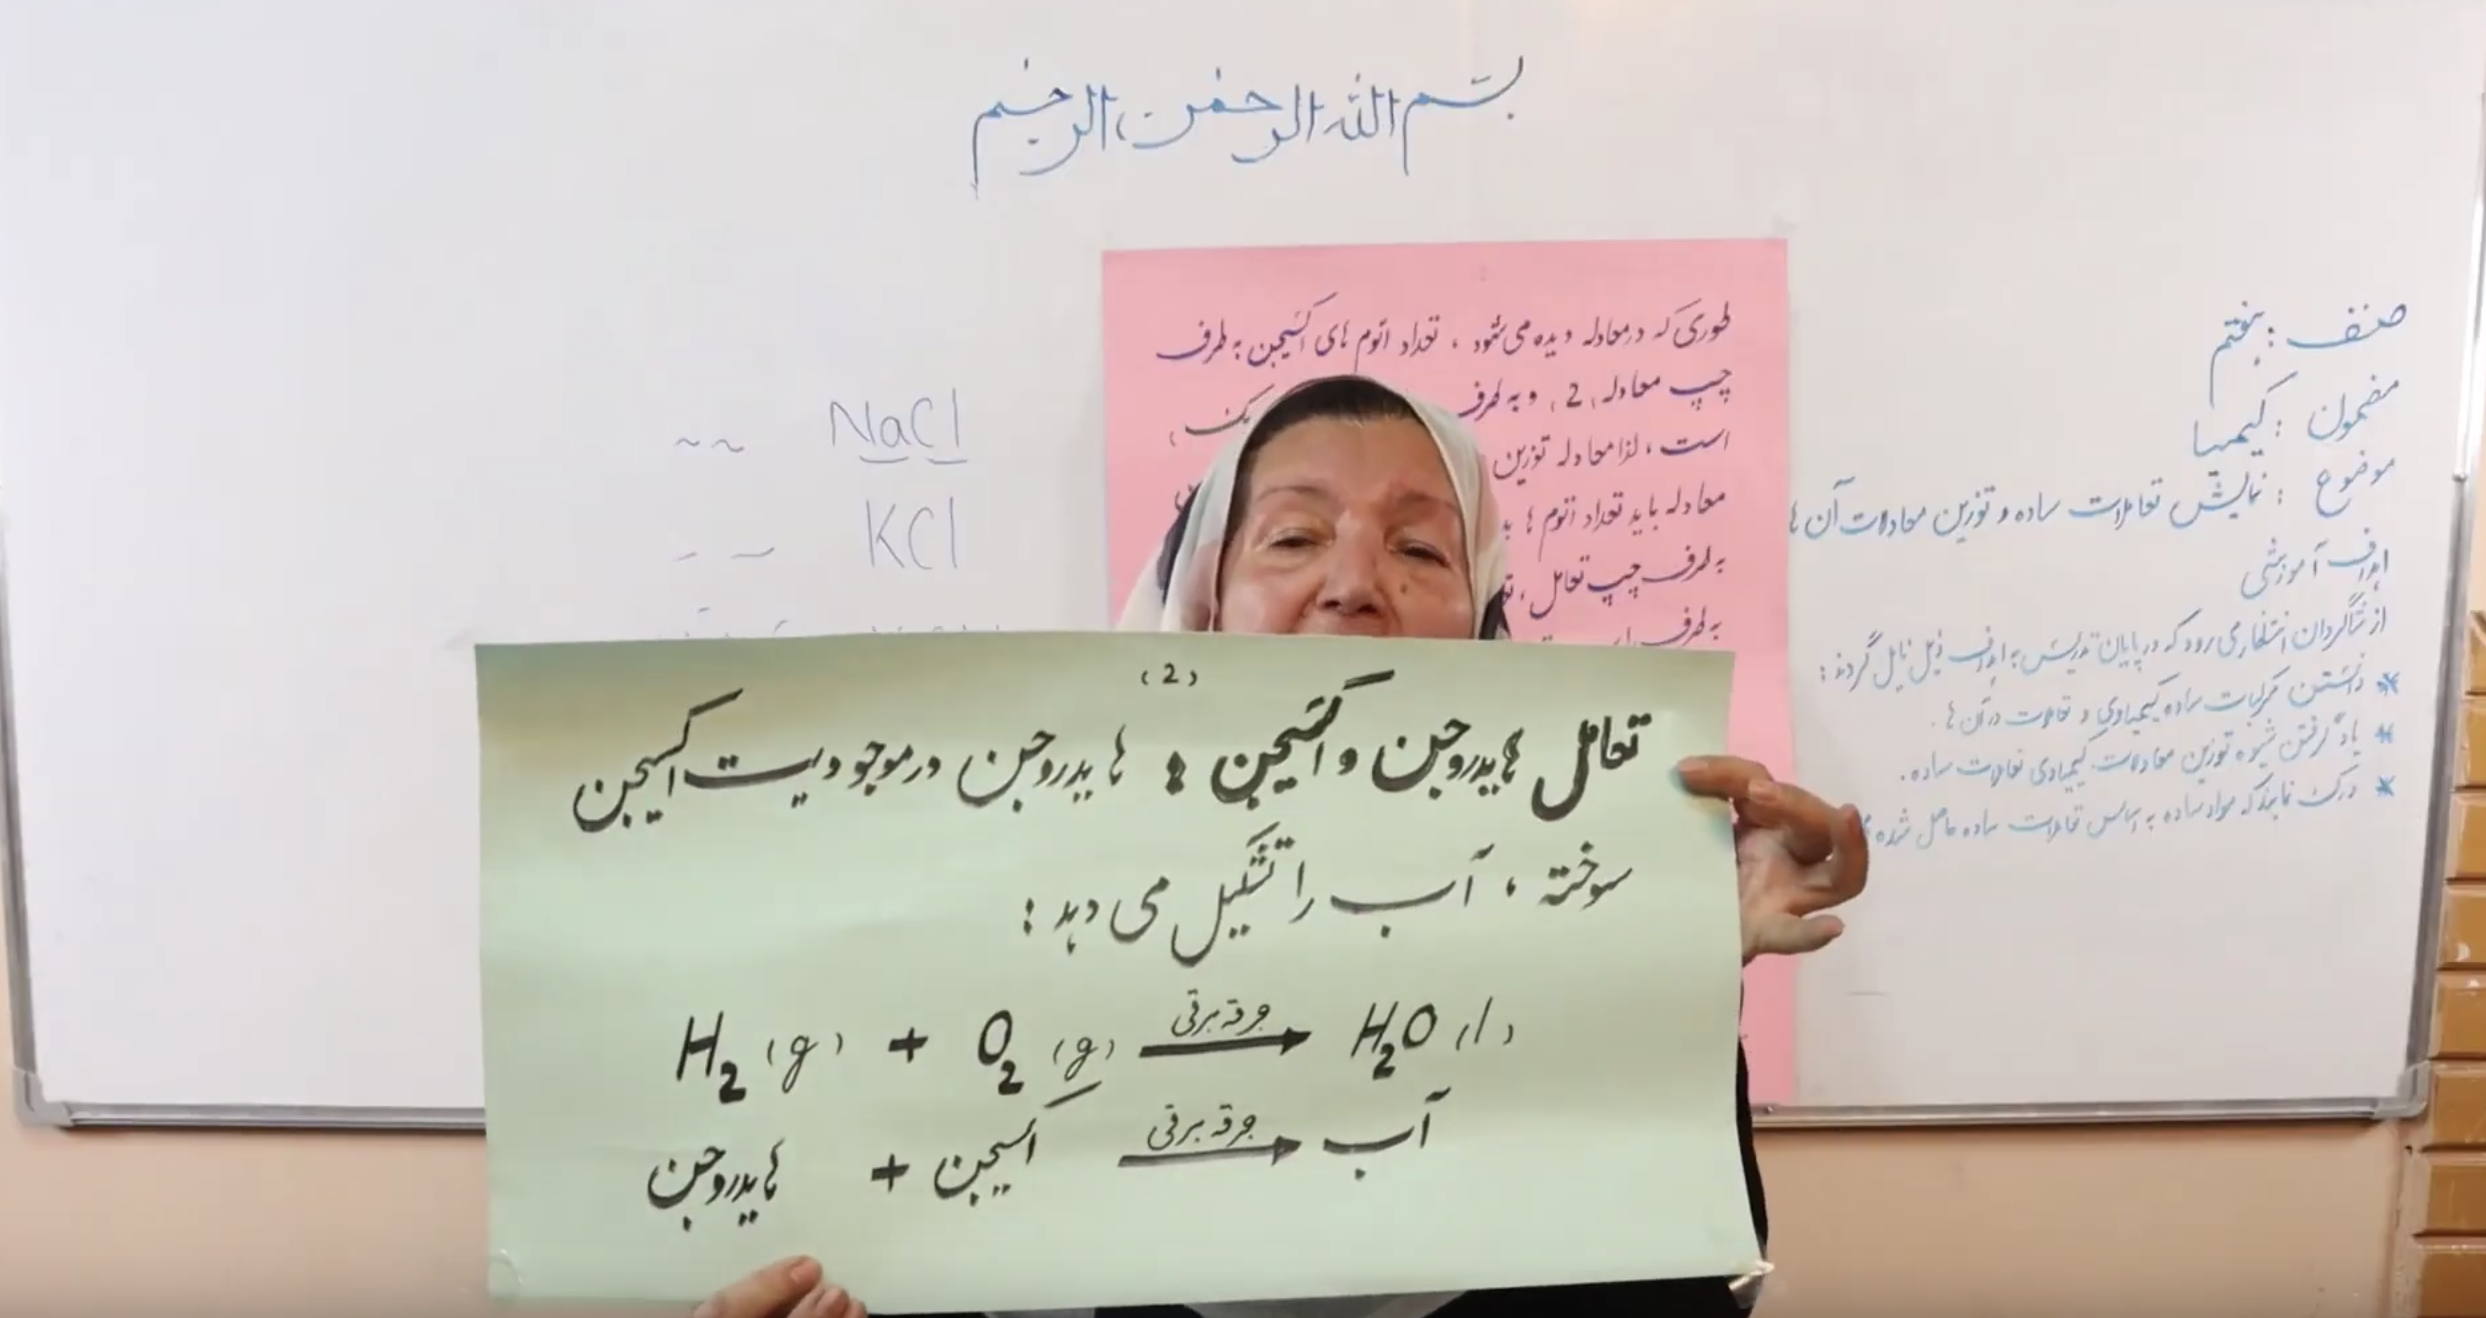 بسم الله الرحمن الرحیم
صنف : هفتم
مضمون : کیمیا
موضوع : نمایش تعاملات ساده و توزین معادلات آن ها
اهداف آموزشی
از شاگردان انتظار می رود که در پایان تدریس به اهداف ذیل نایل گردند :
* دانستن مرکبات ساده کیمیاوی و تعاملات در آن ها .
* یاد گرفتن شیوه توزین معادلات کیمیاوی تعاملات ساده .
* درک نمایند که مواد ساده به اساس تعاملات ساده حاصل شده
طوری که در معادله دیده می شود ، تعداد اتوم های اکسیجن به طرف
چپ معادله (2) و به طرف یک
است ، لذا معادله توزین
معادله باید تعداد اتوم ها
به طرف چپ تعامل ،
به طرف
NaCl
KCl
(2)
تعامل هایدروجن و اکسیجن : هایدروجن در موجودیت اکسیجن
سوخته ، آب را تشکیل می دهد :
H2 (g) + O2 (g) جرقه برقی → H2O (l)
هایدروجن + اکسیجن جرقه برقی → آب